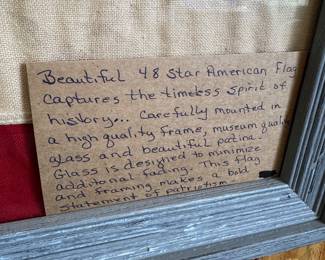 Beautiful 48 Star American Flag
captures the timeless spirit of
history... Carefully mounted in
a high quality frame, museum quality
glass and beautiful patina.
Glass is designed to minimize
additonal fading. This flag
and framing makes a bold
statement of patriotism